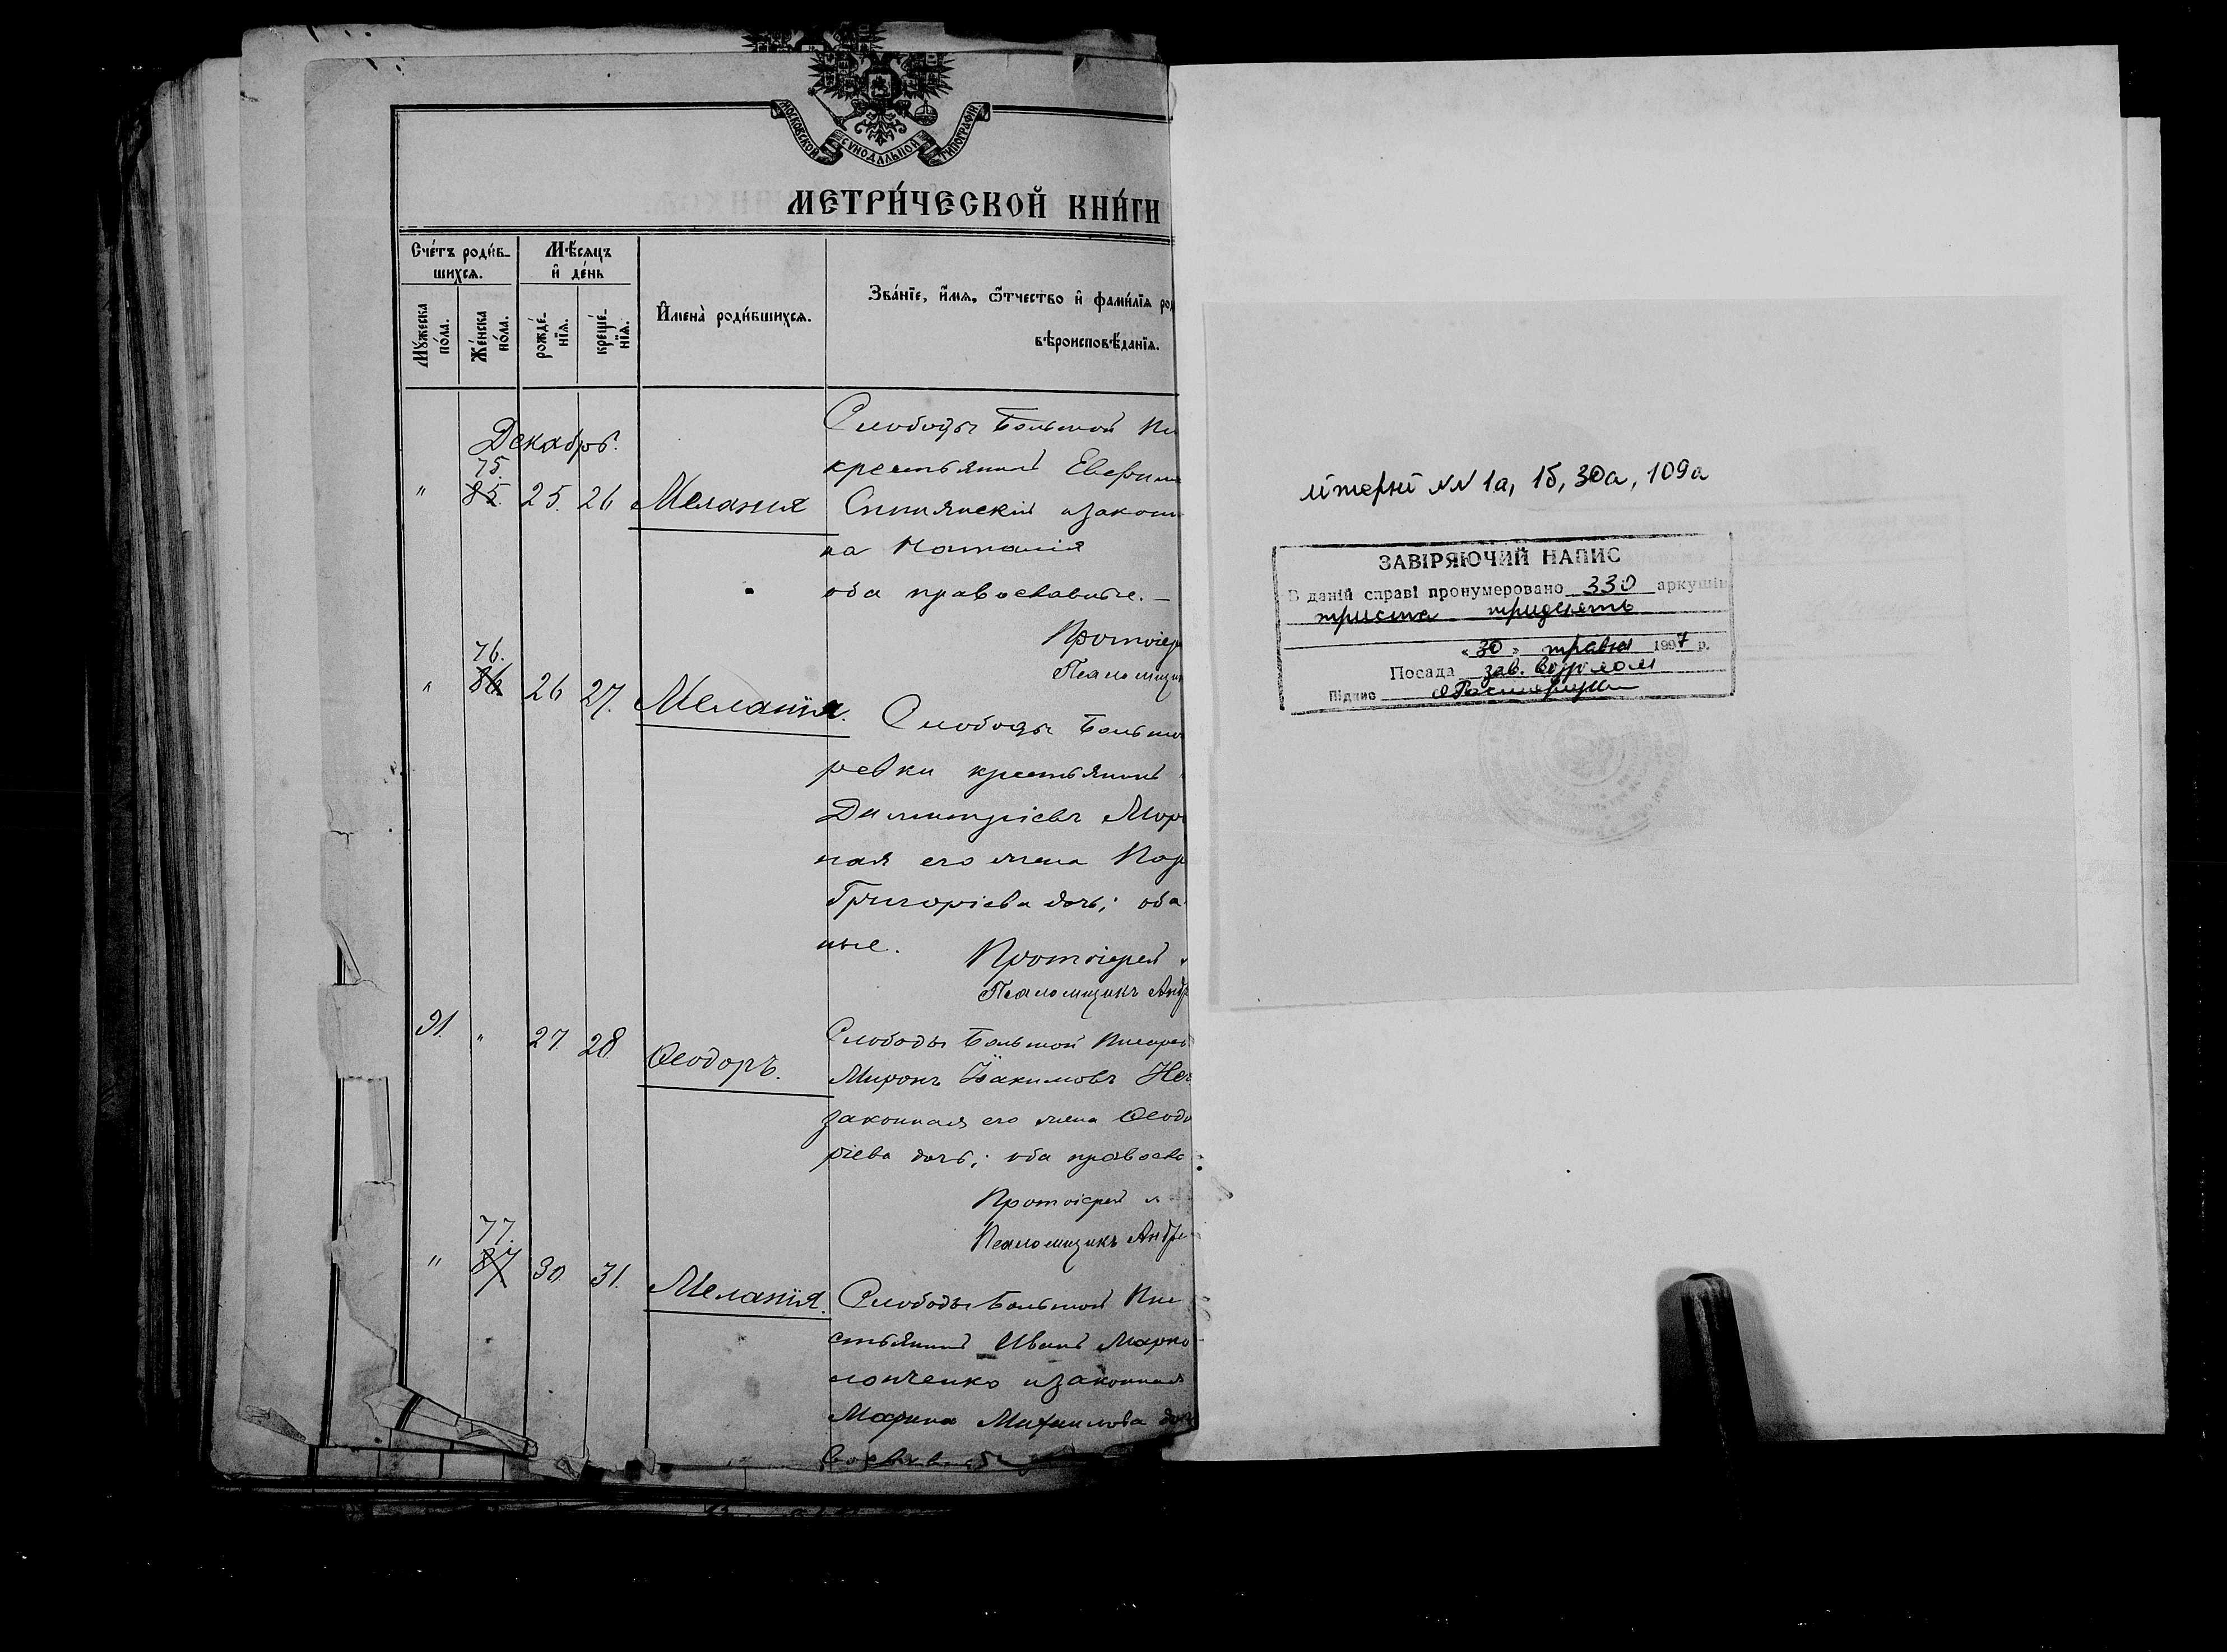 МОСКОВСКОЙ СѴНОДАЛЬНОЙ ТИПОГРАФІИ
МЕТРИ́ЧЕСКОЙ КНИ́ГИ
Сче́тъ роди́в-
шихсѧ.
Мꙋ́жеска
по́ла.
Же́нска
по́ла.
Мѣ́сѧцъ
и҆ де́нь
рожде́-
нїѧ.
креще́-
нїѧ.
И҆мена̀ роди́вшихсѧ.
Зва́нїе, и҆́мѧ, ѻ҆́тчество и҆ фами́лїѧ род
вѣроисповѣ́данїѧ.
Декабрь.
" 75. 85. 25. 26 Меланія
Слободы Большой Пи
крестьянинъ Евфим
и закон
на Наталія
оба православные. —
Протоіер
Псаломщи
" 76. 86 26 27. Меланія.
Слободы Больш
ревки крестьянинъ
Димитріевъ Мор
ная его жена Пар
Григоріева дочь; оба
ные.
Протоіерей
Псаломщикъ Андр
91. " 27. 28 Ѳеодоръ.
Слободы Большой Писарев
Миронъ Іоакимовъ Не
законная его жена Ѳеодо
ріева дочь; оба правосла
Протоіерей
Псаломщикъ Андре
" 77. 87 30. 31. Меланія.
Слободы Большой Пи
стьянинъ Иванъ Марко
и законная
Марина Михаилова доч
літерні №№ 1а, 1б, 30а, 109а
ЗАВІРЯЮЧИЙ НАПИС
В даній справі пронумеровано 330 аркушів
триста тридцять
« 30 » травня 1997 р.
Посада зав. відділом
Підпис